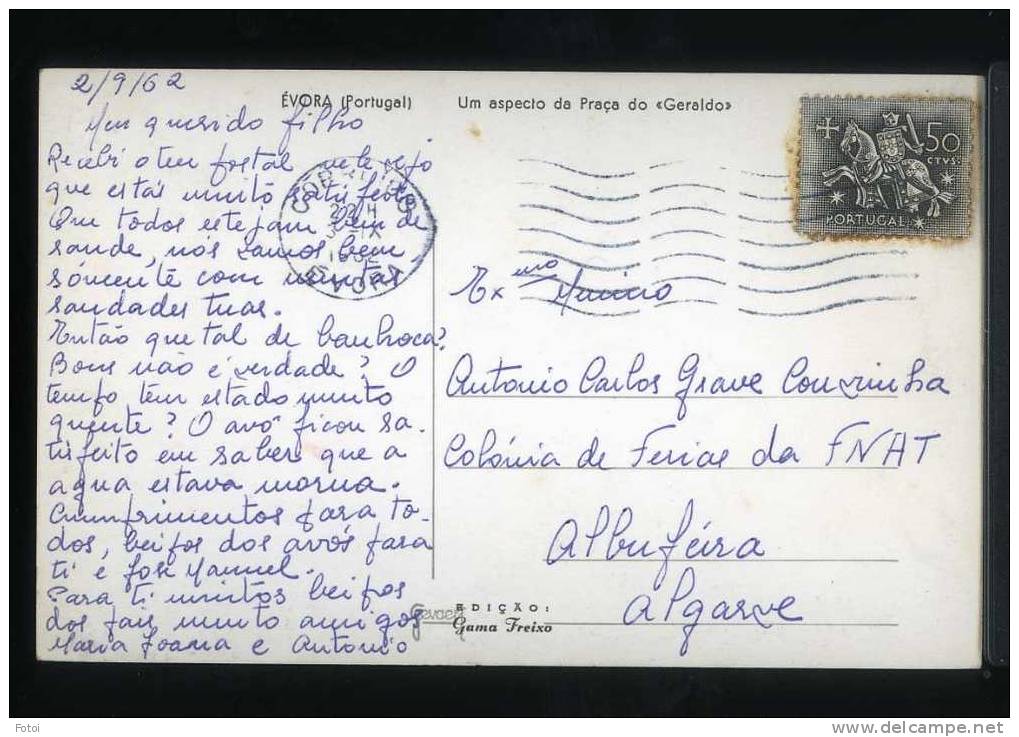 2/9/62
ÉVORA (Portugal) Um aspecto da Praça do «Geraldo»
Meu querido filho
Recebi o teu postal nele vejo
que estás muito satisfeito
Que todos estejam bem de
saude, nós vamos bem,
sómente com muitas
saudades tuas.
Então que tal de banhoca?
Bons não é verdade? O
tempo tem estado muito
quente? O avô ficou sa-
tisfeito em saber que a
agua estava morna.
Cumprimentos para to-
dos, beijos dos avós para
ti e José Manuel.
Para ti muitos beijos
dos pais muito amigos
Maria Joana e Antonio
50
CTVS.
PORTUGAL
CORREIOS
ÉVORA
Exmo Menino
Antonio Carlos Grave Couvinha
Colónia de Ferias da FNAT
Albufeira
Algarve
Gevaert
EDIÇÃO:
Gama Freixo
Fotoi
www.delcampe.net